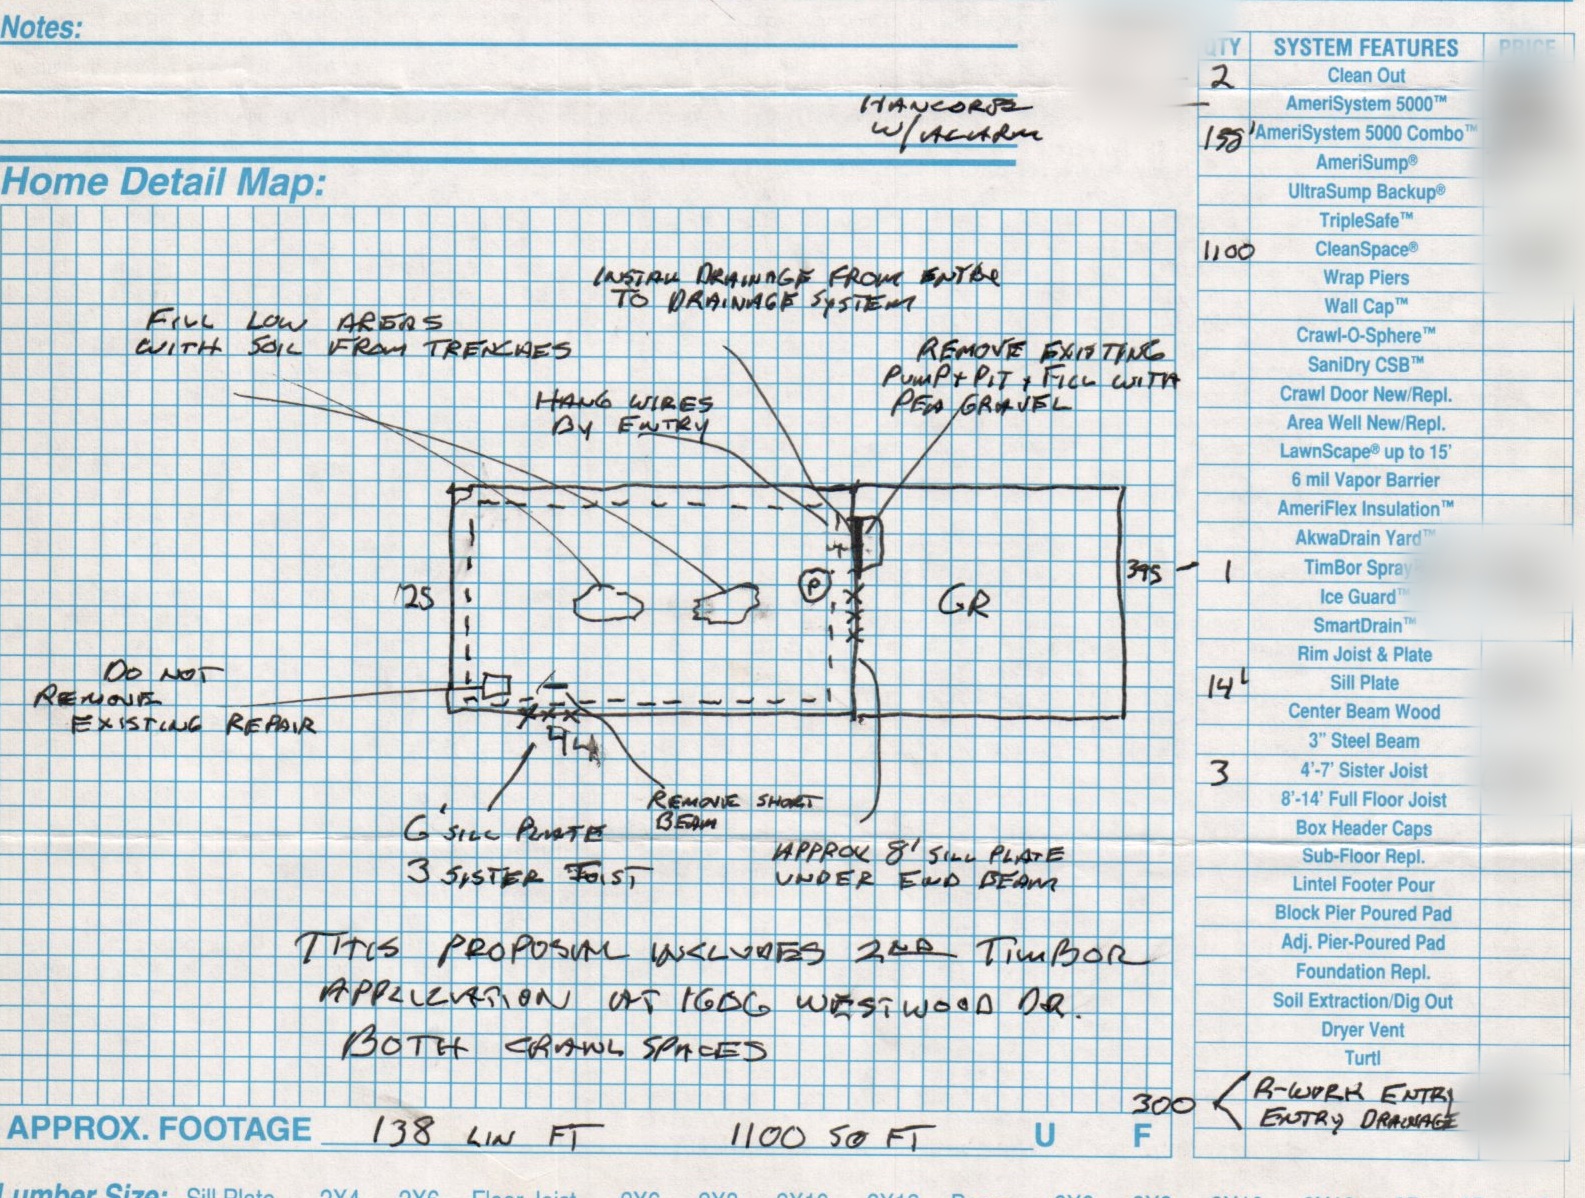 Notes:
W/ALARM
Home Detail Map:
INSTALL DRAINAGE FROM ENTRY
TO DRAINAGE SYSTEM
FILL LOW AREAS
WITH SOIL FROM TRENCHES
REMOVE EXISTING
PUMP + PIT + FILL WITH
PEA GRAVEL
HANG WIRES
BY ENTRY
P
GR
395
DO NOT
REMOVE
EXISTING REPAIR
REMOVE SHORT
BEAM
6' SILL PLATE
3 SISTER JOIST
APPROX 8' SILL PLATE
UNDER END BEAM
THIS PROPOSAL INCLUDES 2ND TIMBOR
APPLICATION AT 1606 WESTWOOD DR.
BOTH CRAWL SPACES
APPROX. FOOTAGE 138 LIN FT 1100 SQ FT U F
QTY SYSTEM FEATURES PRICE
2 Clean Out
AmeriSystem 5000™
AmeriSystem 5000 Combo™
AmeriSump®
UltraSump Backup®
TripleSafe™
1100 CleanSpace®
Wrap Piers
Wall Cap™
Crawl-O-Sphere™
SaniDry CSB™
Crawl Door New/Repl.
Area Well New/Repl.
LawnScape® up to 15'
6 mil Vapor Barrier
AmeriFlex Insulation™
AkwaDrain Yard™
1 TimBor Spray
Ice Guard™
SmartDrain™
Rim Joist & Plate
14' Sill Plate
Center Beam Wood
3" Steel Beam
3 4'-7' Sister Joist
8'-14' Full Floor Joist
Box Header Caps
Sub-Floor Repl.
Lintel Footer Pour
Block Pier Poured Pad
Adj. Pier-Poured Pad
Foundation Repl.
Soil Extraction/Dig Out
Dryer Vent
Turtl
300 R-WORK ENTRY
ENTRY DRAINAGE
Lumber Size: Sill Plate 2X4 2X6 Floor Joist